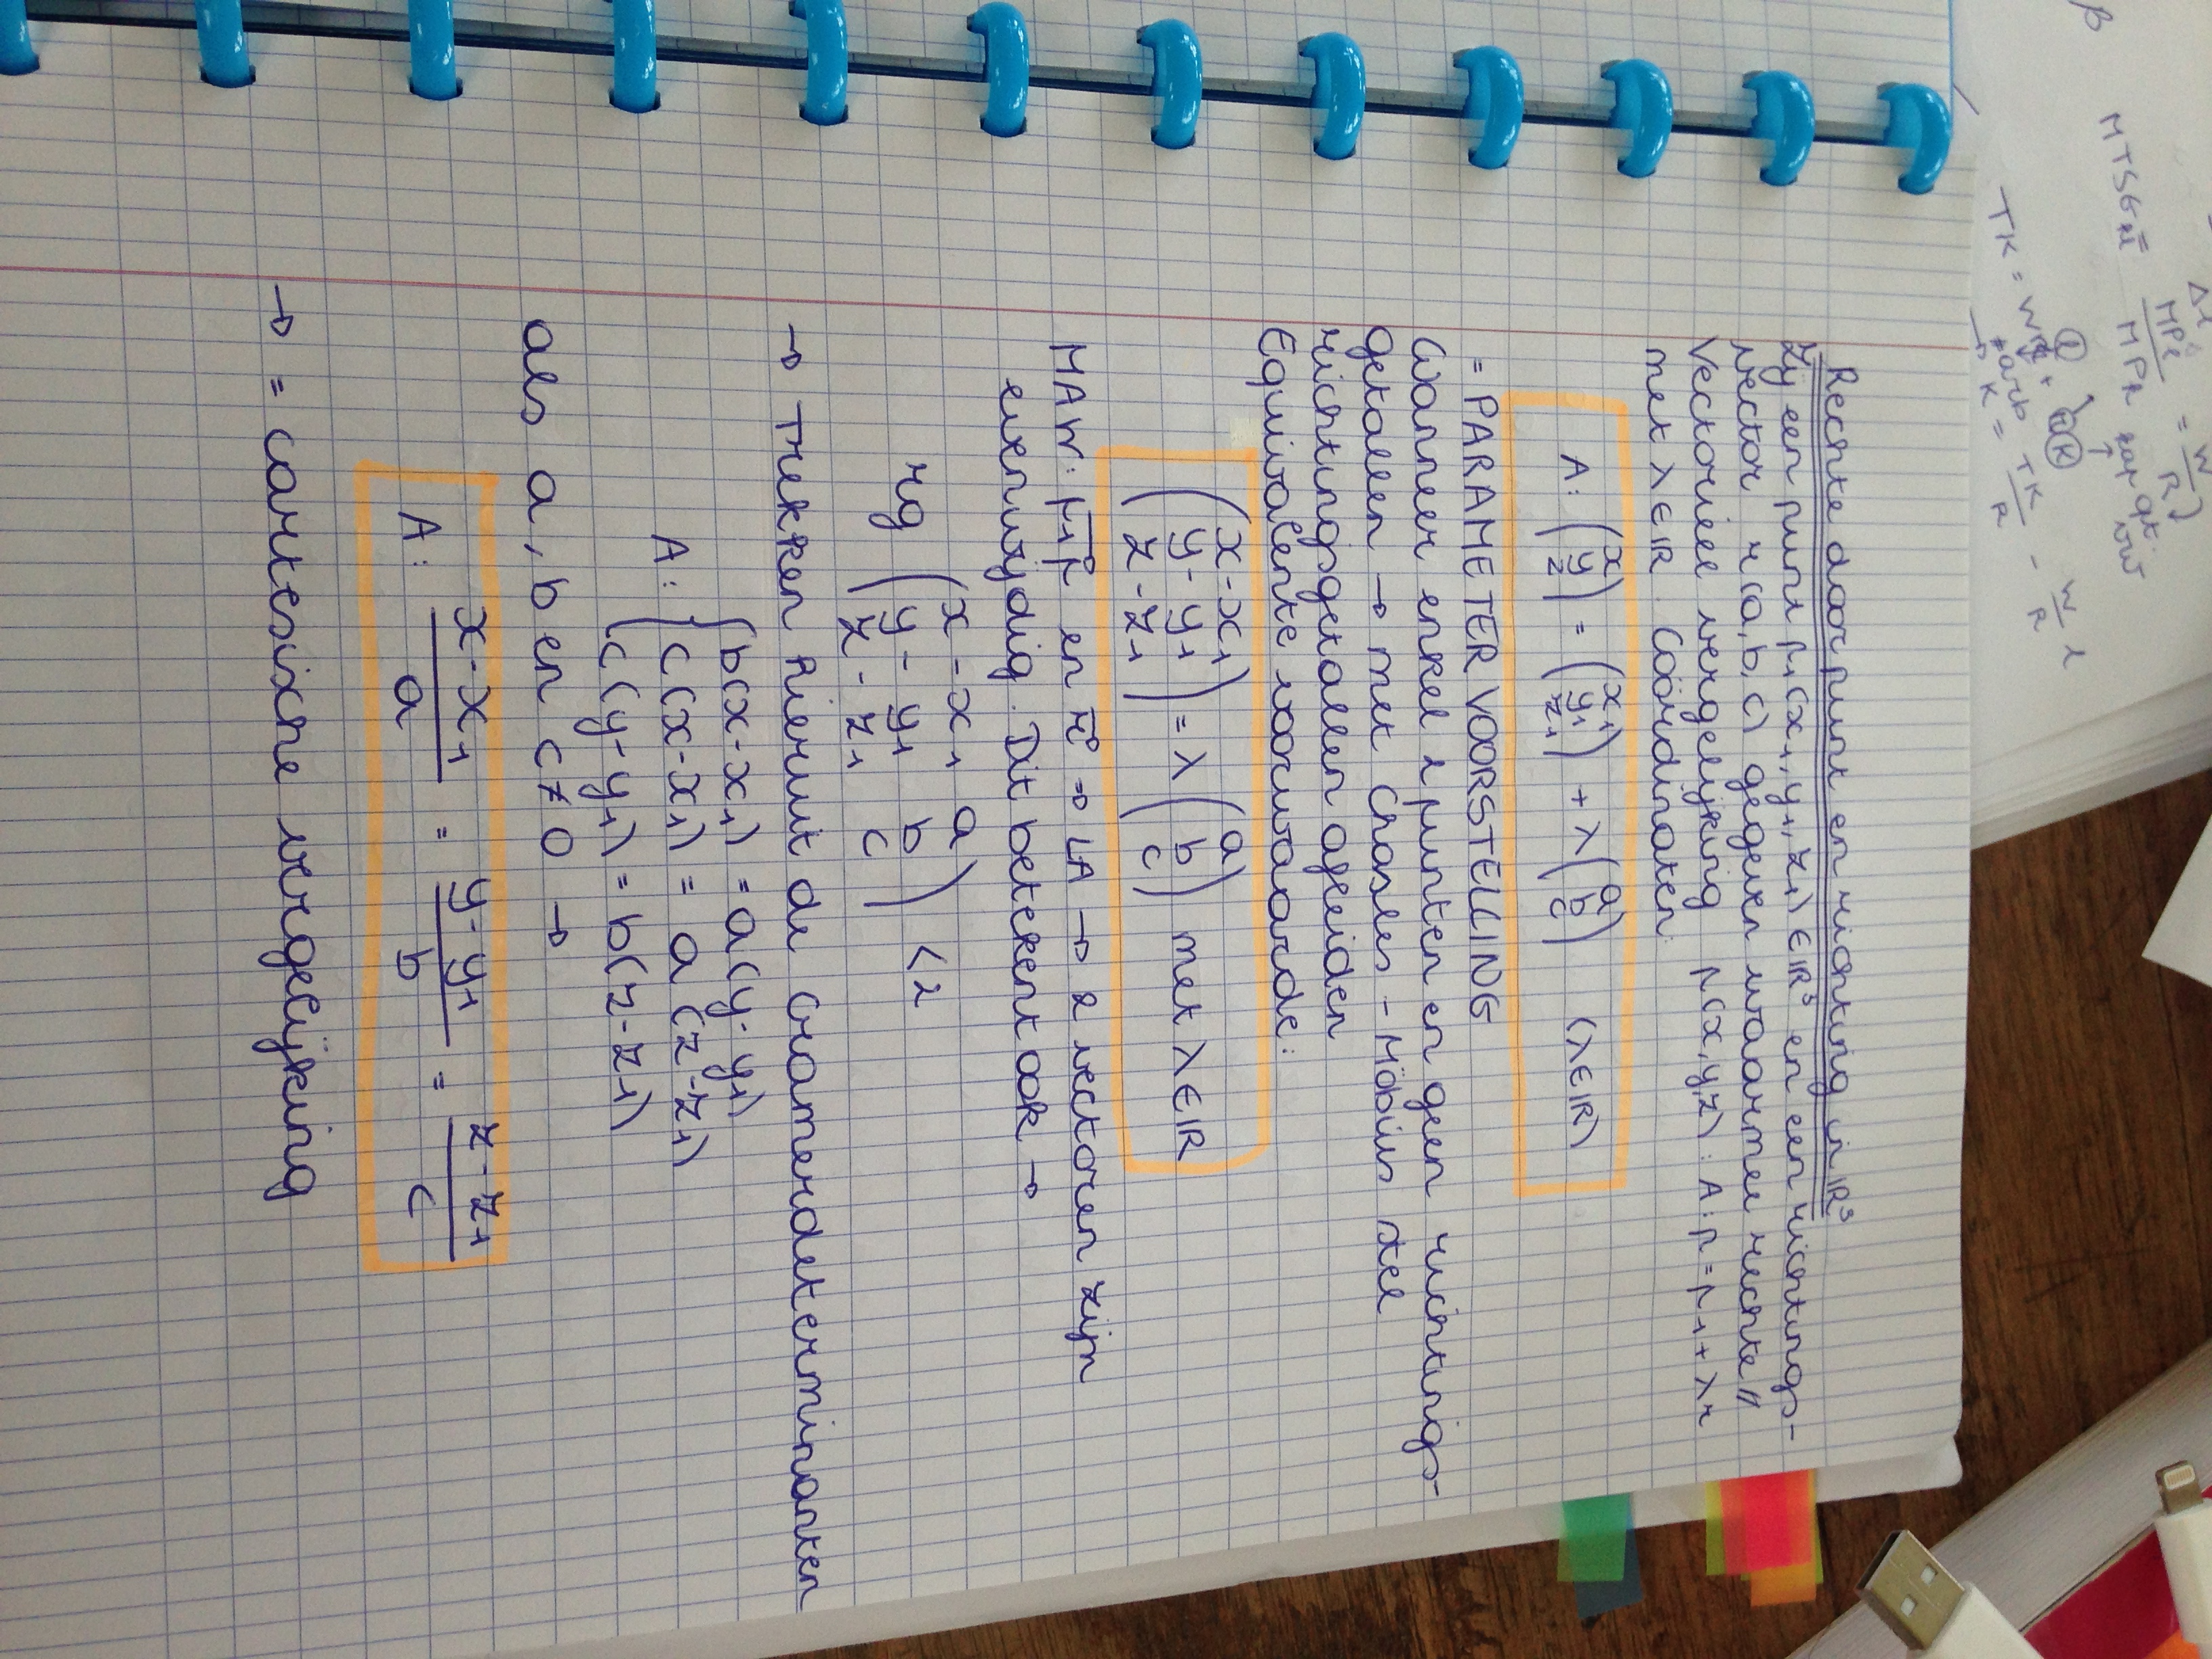 Rechte door punt en richting in ℝ³
Zij een punt p₁(x₁, y₁, z₁) ∈ ℝ³ en een richtings-
vector r(a, b, c) gegeven waarmee rechte //
Vectoriële vergelijking p(x, y, z): A: p = p₁ + λr
met λ ∈ ℝ Coördinaten:
A: (x y z) = (x₁ y₁ z₁) + λ (a b c) (λ ∈ ℝ)
= PARAMETERVOORSTELLING
Wanneer enkel 2 punten en geen richtings-
getallen → met Chasles-Möbius stel
richtingsgetallen afleiden
Equivalente voorwaarde:
(x-x₁ y-y₁ z-z₁) = λ (a b c) met λ ∈ ℝ
MAW: p₁p en r ⇒ LA → 2 vectoren zijn
evenwijdig. Dit betekent ook →
rg (x-x₁ a y-y₁ b z-z₁ c) < 2
→ Trekken hieruit de Cramerdeterminanten
A: { b(x-x₁) = a(y-y₁)
c(x-x₁) = a(z-z₁)
c(y-y₁) = b(z-z₁)
als a, b en c ≠ 0 →
A: x-x₁/a = y-y₁/b = z-z₁/c
→ = cartesische vergelijking
β
MTSGN =
MPL
MPK
= W
R
TK = WL + RK
K = TK/R - W/R L